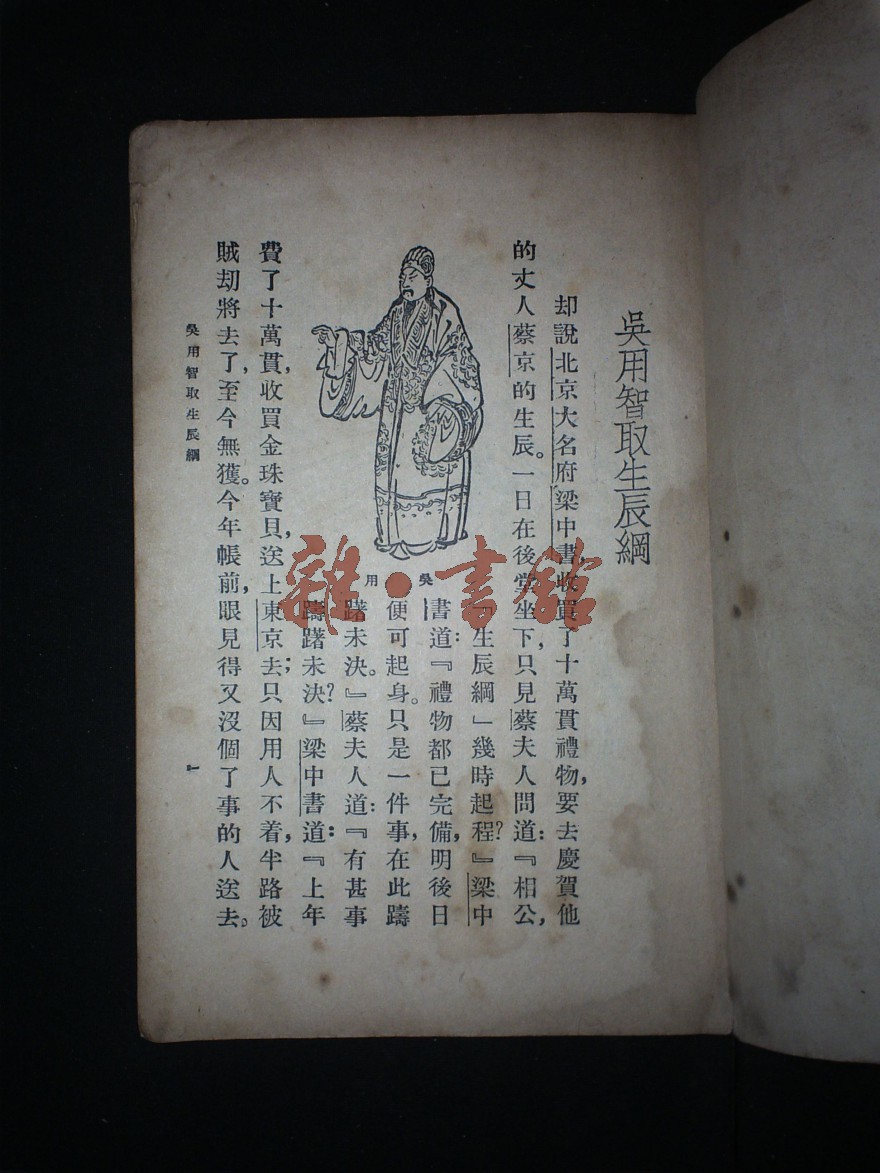 吳用智取生辰綱
却說北京大名府梁中書，收買了十萬貫禮物，要去慶賀他
的丈人蔡京的生辰。一日在後堂坐下，只見蔡夫人問道：『相公，
『生辰綱」幾時起程？』梁中
書道：『禮物都已完備，明後日
便可起身。只是一件事，在此躊
躇未決。』蔡夫人道：『有甚事
躊躇未決？』梁中書道：『上年
費了十萬貫，收買金珠寶貝，送上東京去；只因用人不着，半路被
賊刧將去了，至今無獲。今年帳前，眼見得又沒個了事的人送去。
吳用
吳用智取生辰綱
一
雜·書館